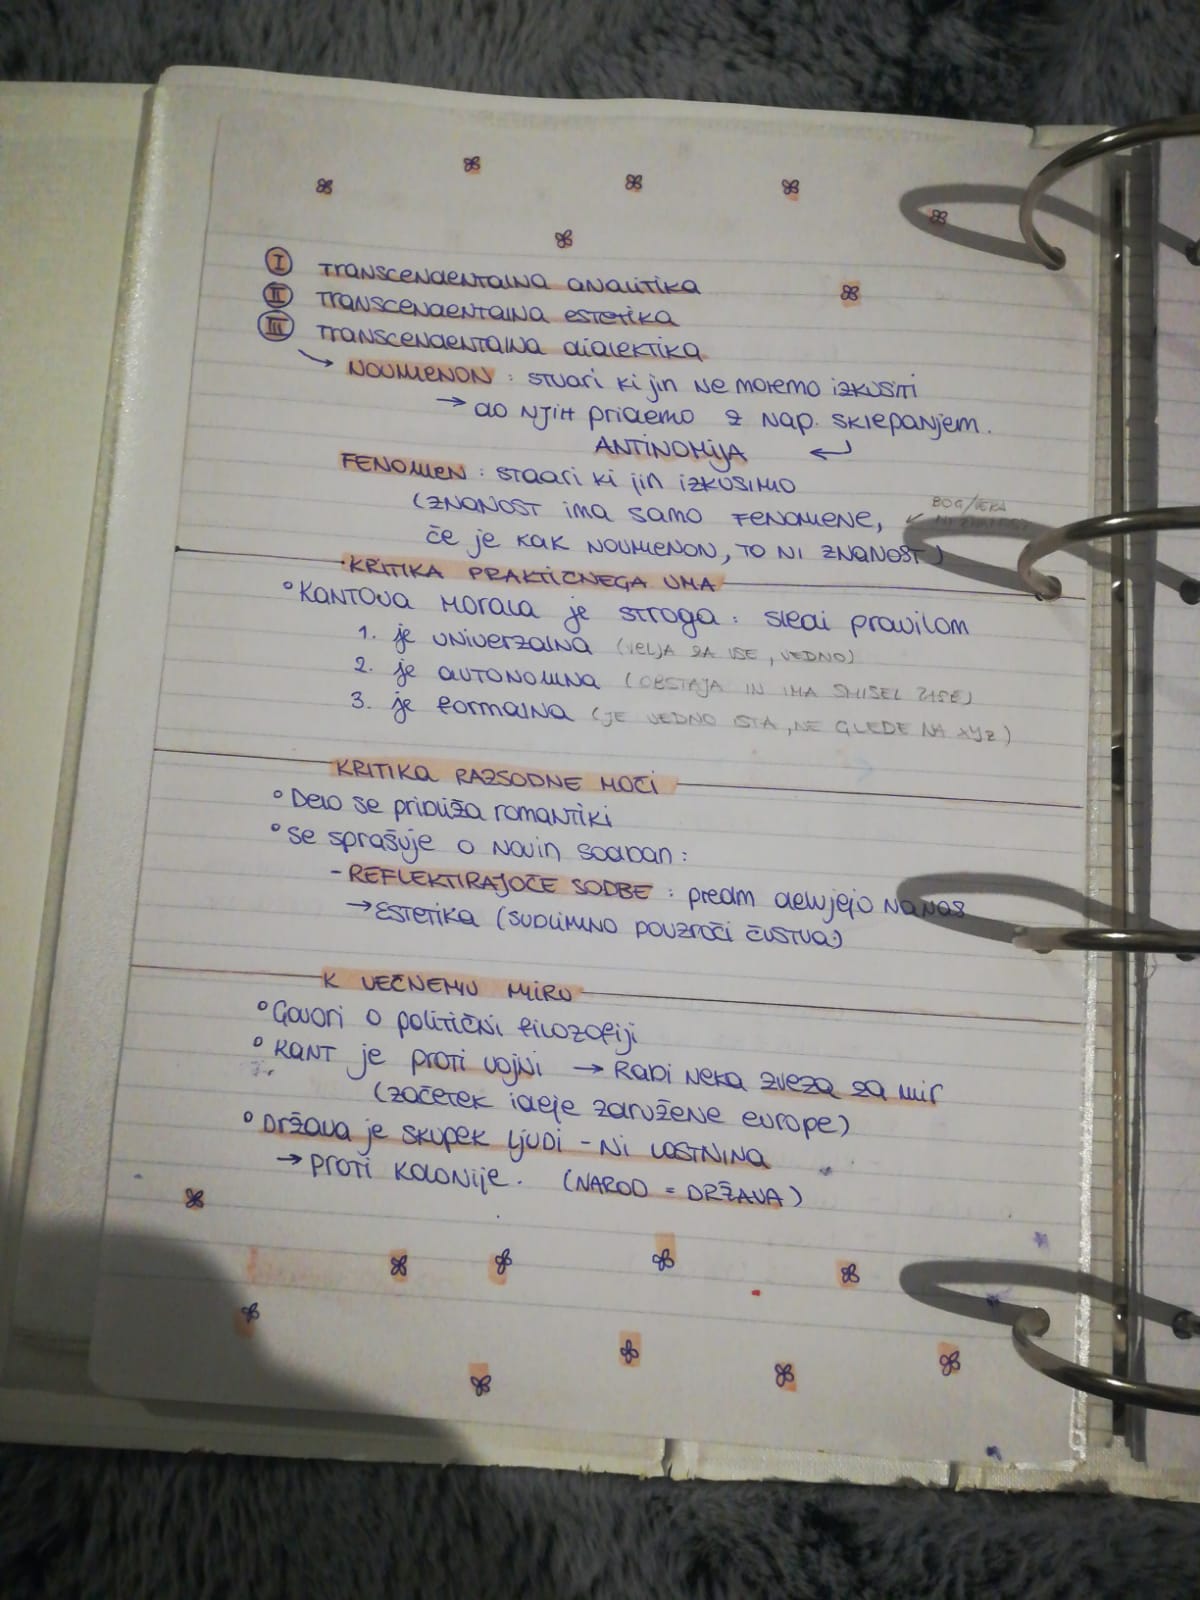 I TRANSCENDENTALNA ANALITIKA
II TRANSCENDENTALNA ESTETIKA
III TRANSCENDENTALNA DIALEKTIKA
→ NOUMENON : STVARI KI JIH NE MOREMO IZKUSITI
→ DO NJIH PRIDEMO Z NAP. SKLEPANJEM.
ANTINOMIJA ↵
FENOMEN : STVARI KI JIH IZKUSIMO
(ZNANOST IMA SAMO FENOMENE, ↙ BOG/VERA
ČE JE KAK NOUMENON, TO NI ZNANOST)
KRITIKA PRAKTIČNEGA UMA
° KANTOVA MORALA JE STROGA : SLEDI PRAVILOM
1. JE UNIVERZALNA (VELJA ZA VSE, VEDNO)
2. JE AUTONOMNA (OBSTAJA IN IMA SMISEL ZASE)
3. JE FORMALNA (JE VEDNO ISTA, NE GLEDE NA XYZ)
KRITIKA RAZSODNE MOČI
° DELO SE PRIBLIŽA ROMANTIKI
° SE SPRAŠUJE O NOVIH SODBAH :
- REFLEKTIRAJOČE SODBE : PREDM DELUJEJO NA NAS
→ ESTETIKA (SUBLIMNO POVZROČI ČUSTVA)
K VEČNEMU MIRU
° GOVORI O POLITIČNI FILOZOFIJI
° KANT JE PROTI VOJNI → RABI NEKA ZVEZA ZA MIR
(ZAČETEK IDEJE ZDRUŽENE EUROPE)
° DRŽAVA JE SKUPEK LJUDI - NI LASTNINA
→ PROTI KOLONIJE. (NAROD = DRŽAVA)